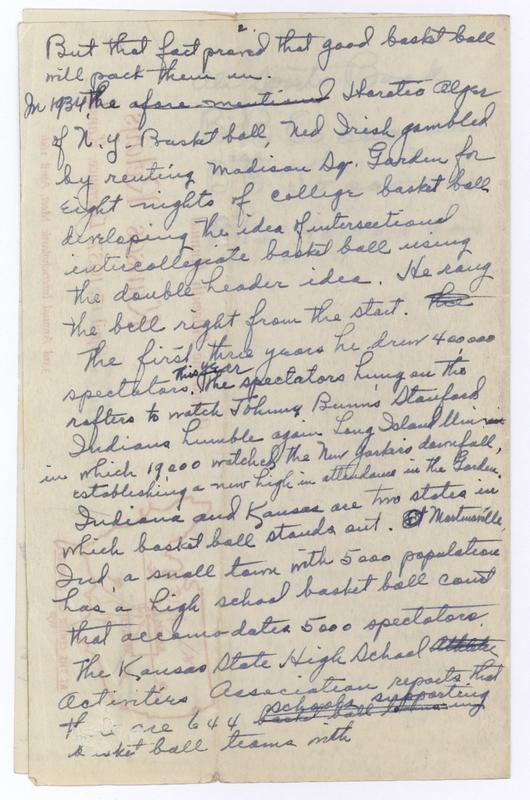 2.
But that fact proved that good basket ball
will pack them in.
In 1934 the afore mentioned Horatio Alger
of N.Y. Basket ball, Ned Irish gambled
by renting Madison Sq. Garden for
eight nights of college basket ball
developing the idea of intersectional
intercollegiate basket ball using
the double header idea. He rang
the bell right from the start. The
The first three years he drew 400000
spectators. This year The spectators hung on the
rafters to watch Johnny Bunn's Stanford
Indians humble again Long Island Univ
in which 19,000 watched the New Yorkers downfall,
establishing a new high in attendance in the Garden.
Indiana and Kansas are two states in
which basket ball stands out. At Martinsville,
Ind. a small town with 5000 population
has a high school basket ball court
that accomodates 5000 spectators.
The Kansas State High School Athletic
Activities Association reports that
there are 644 schools supporting
basket ball teams with